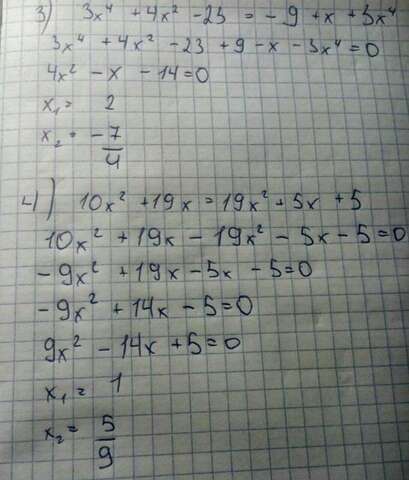 3) 3x⁴ + 4x² - 23 = - 9 + x + 3x⁴
3x⁴ + 4x² - 23 + 9 - x - 3x⁴ = 0
4x² - x - 14 = 0
x₁ = 2
x₂ = -7/4
4) 10x² + 19x = 19x² + 5x + 5
10x² + 19x - 19x² - 5x - 5 = 0
-9x² + 19x - 5x - 5 = 0
-9x² + 14x - 5 = 0
9x² - 14x + 5 = 0
x₁ = 1
x₂ = 5/9